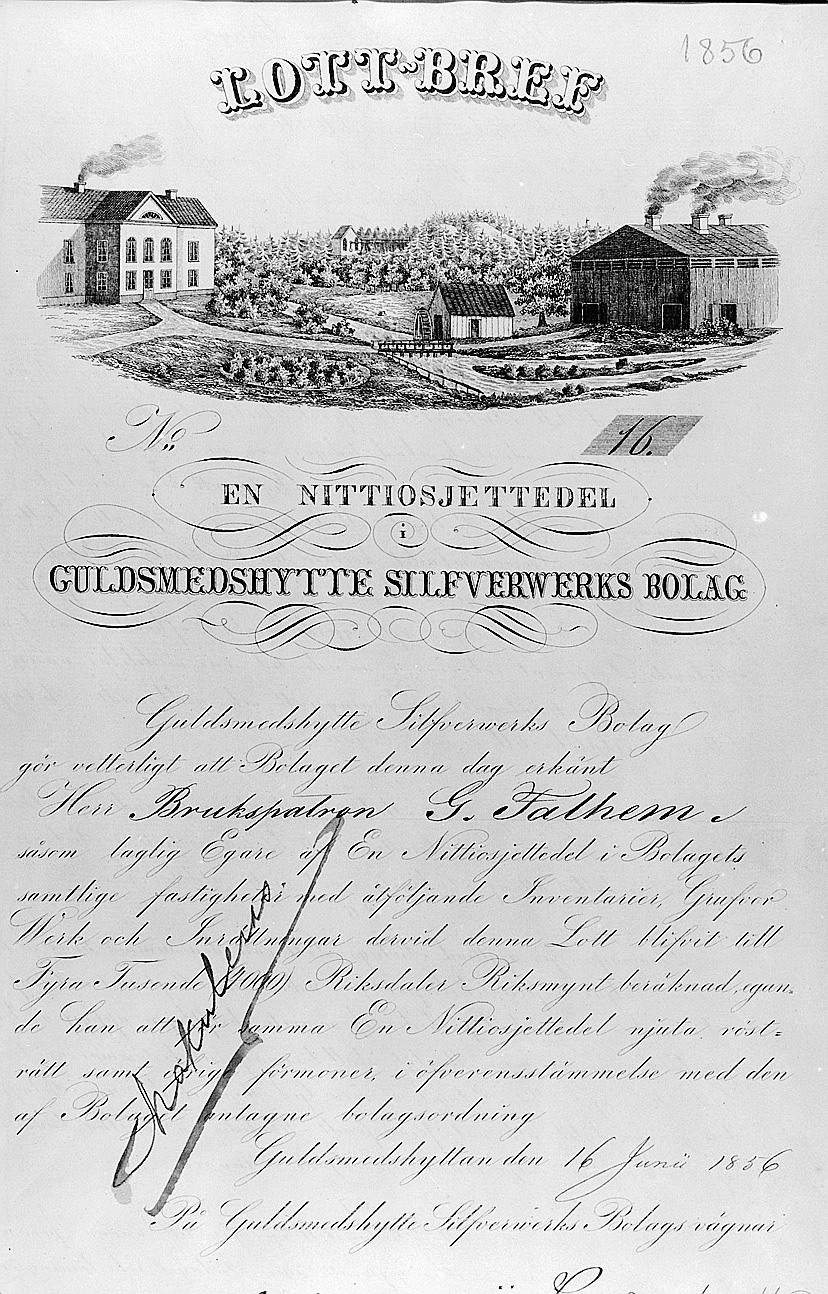 1856
LOTT-BREF
No. 16.
EN NITTIOSJETTEDEL
i
GULDSMEDSHYTTE SILFVERWERKS BOLAG
Guldsmedshytte Silfverwerks Bolag
gör vetterligt att Bolaget denna dag erkänt
Herr Brukspatron G. Falhem
såsom laglig Egare af En Nittiosjettedel i Bolagets
samtlige fastigheter med åtföljande Inventarier, Grufvor
Werk och Inrättningar dervid denna Lott blifvit till
Fyra Tusende (4000) Riksdaler Riksmynt beräknad, egan-
de han att för samma En Nittiosjettedel njuta röst-
rätt samt öfrige förmoner, i öfverensstämmelse med den
af Bolaget antagne bolagsordning
Guldsmedshyttan den 16 Junii 1856
På Guldsmedshytte Silfverwerks Bolags vägnar